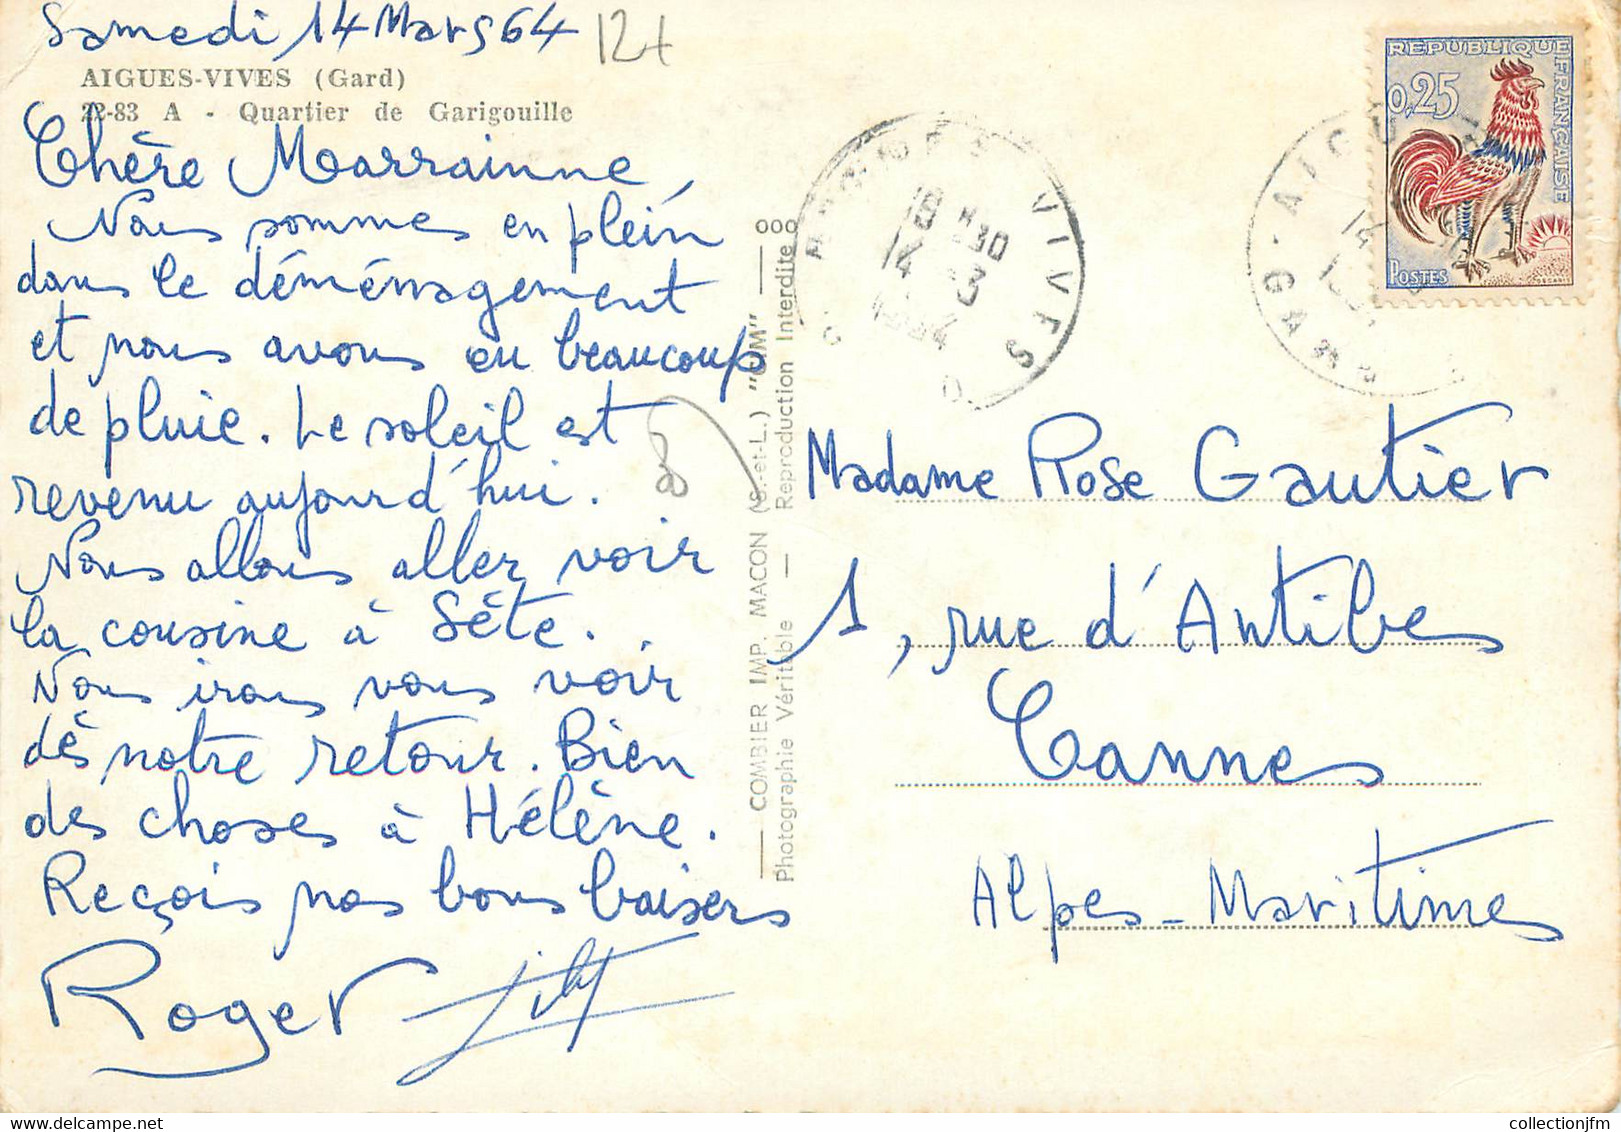 Samedi 14 Mars 64
12t
AIGUES-VIVES (Gard)
22-83 A - Quartier de Garigouille
Chère Marrainne,
Nous sommes en plein
dans le déménagement
et nous avons eu beaucoup
de pluie. Le soleil est
revenu aujourd'hui.
Nous allons aller voir
la cousine à Sète.
Nous irons vous voir
dès notre retour. Bien
des choses à Hélène.
Reçois nos bons baisers
Roger
COMBIER IMP. MACON (S.-et-L.) "CIM"
Photographie Véritable — Reproduction Interdite
VIVES
18 H 30
14 -3
1964
GARD
14
REPUBLIQUE FRANÇAISE
0,25
POSTES
Madame Rose Gautier
1, rue d'Antibes
Cannes
Alpes-Maritimes
collectionjfm